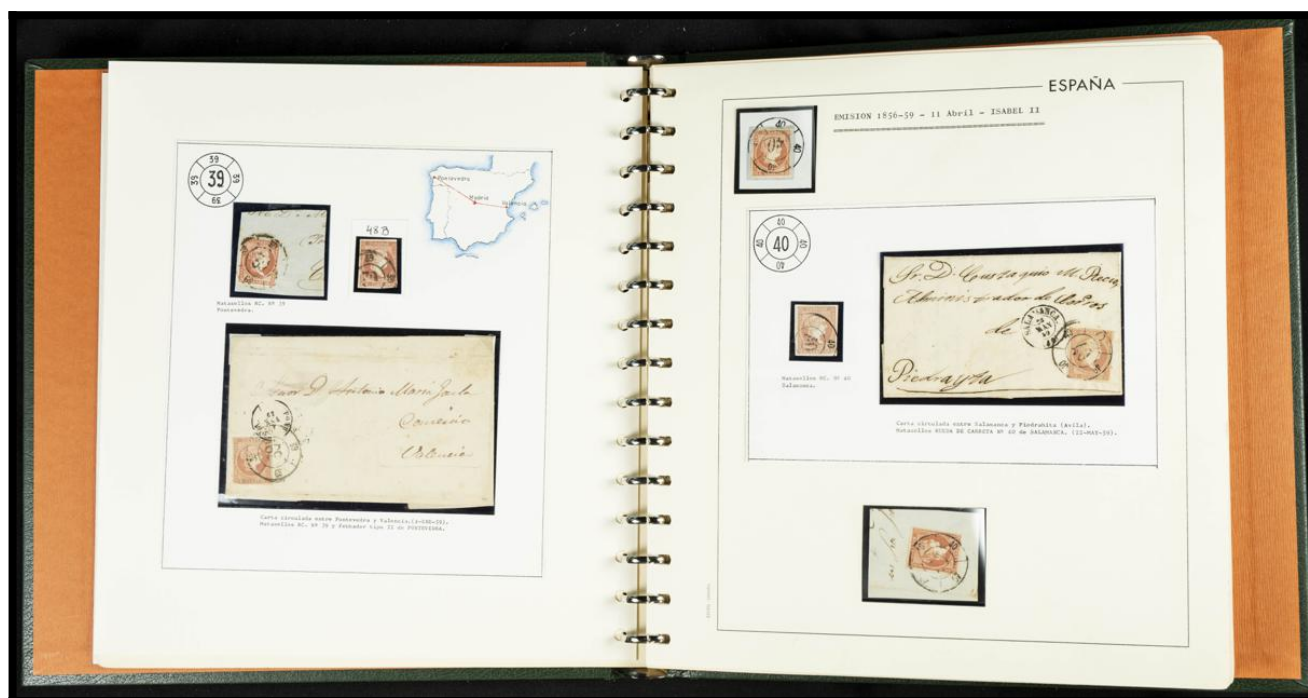 59
39 39 59
59
Pontevedra
Madrid
Valencia
48B
Matasellos RC. Nº 39
Pontevedra.
D. Antonio María
Valencia
Carta circulada entre Pontevedra y Valencia.
Matasellos RC. Nº 39 y Fechador tipo II de PONTEVEDRA.
ESPAÑA
EMISION 1856-59 - 11 Abril - ISABEL II
40
40
40
40
40 40 40
40
40
Matasellos RC. Nº 40
Salamanca.
Sr. D. Eustaquio M.
Administrador de Correos
de
SALAMANCA
MAY
Piedrayta
Carta circulada entre Salamanca y Piedrahita (Avila).
Matasellos RUEDA DE CARRETA Nº 40 de SALAMANCA. (22-MAY-59).